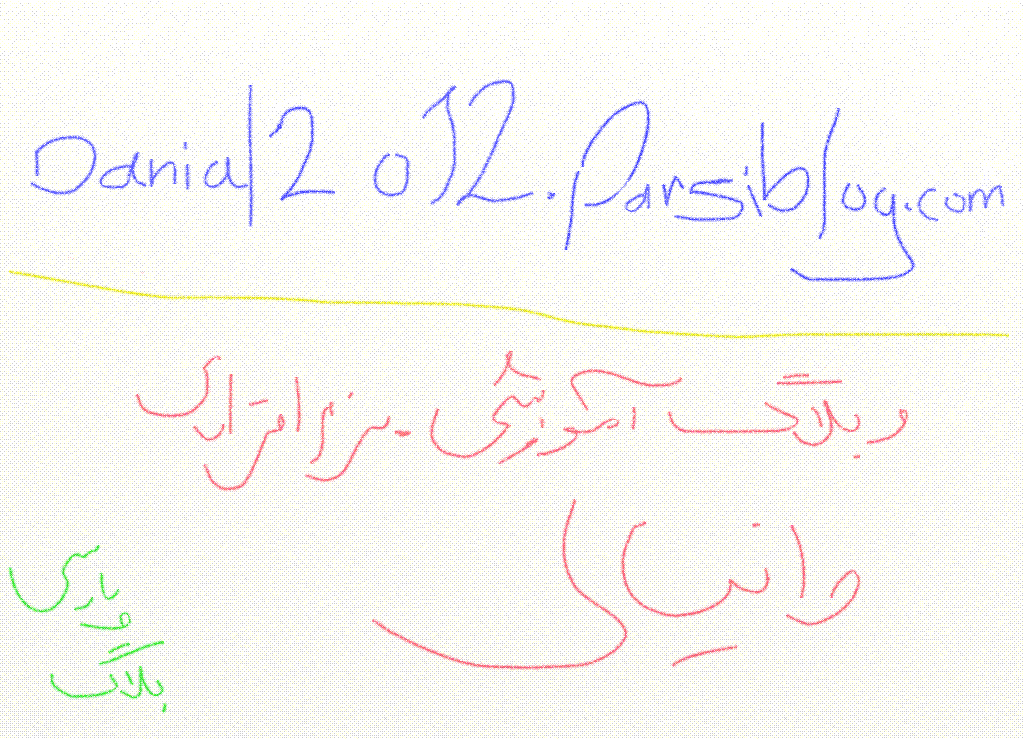 Danial2012.Parsiblog.com
وبلاگ آموزشی نرم افزاری
دانیال
پارسی
بلاگ